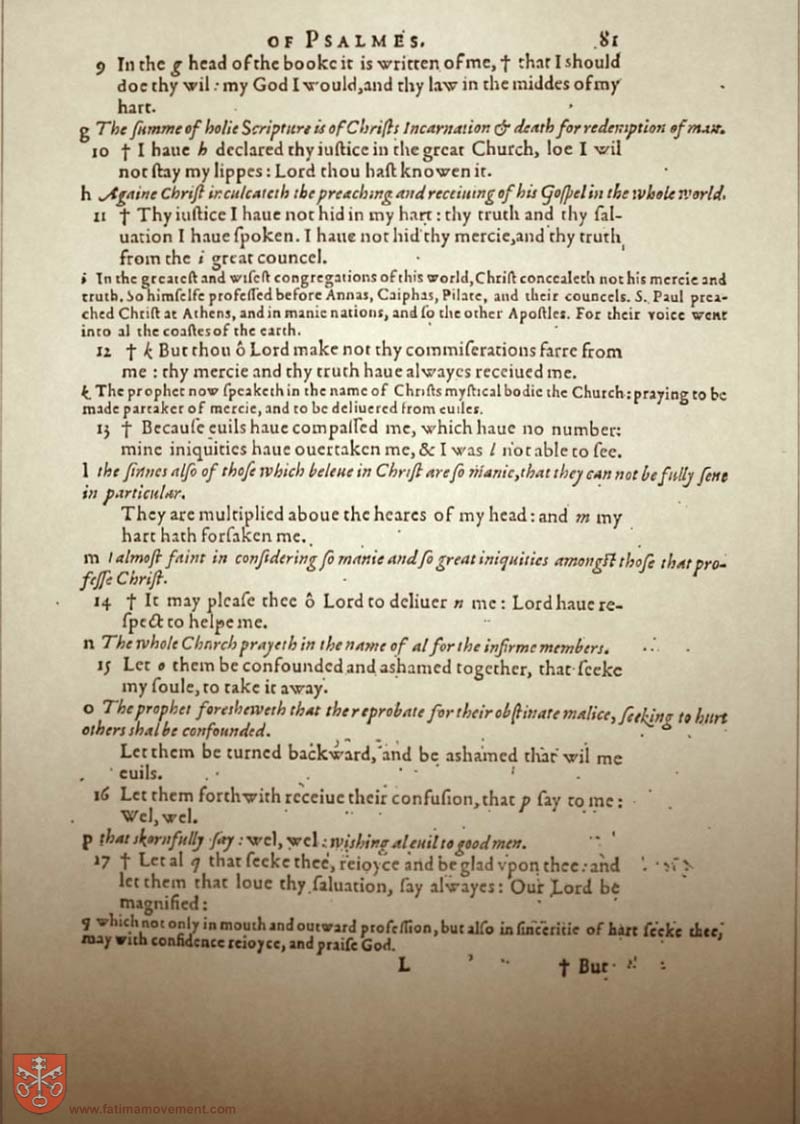 OF PSALMES. 81
9 In the g head of the booke it is written of me, † that I should
doe thy wil: my God I would, and thy law in the middes of my
hart.
g The ſumme of holie Scripture is of Chriſts Incarnation & death for redemption of man.
10 † I haue h declared thy iuſtice in the great Church, loe I wil
not ſtay my lippes: Lord thou haſt knowen it.
h Againe Chriſt inculcateth the preaching and receiuing of his Goſpel in the whole world.
11 † Thy iuſtice I haue not hid in my hart: thy truth and thy ſal-
uation I haue ſpoken. I haue not hid thy mercie, and thy truth
from the i great councel.
i In the greateſt and wiſeſt congregations of this world, Chriſt concealeth not his mercie and
truth. So himſelfe profeſſed before Annas, Caiphas, Pilate, and their councels. S. Paul prea-
ched Chriſt at Athens, and in manie nations, and ſo the other Apoſtles. For their voice went
into al the coaſtes of the earth.
12 † k But thou ô Lord make not thy commiſerations farre from
me: thy mercie and thy truth haue alwayes receiued me.
k The prophet now ſpeaketh in the name of Chriſts myſtical bodie the Church: praying to be
made partaker of mercie, and to be deliuered from euiles.
13 † Becauſe euils haue compaſſed me, which haue no number:
mine iniquities haue ouertaken me, & I was l not able to ſee.
l the ſinnes alſo of thoſe which beleue in Chriſt are ſo manie, that they can not be fully ſene
in particular.
They are multiplied aboue the heares of my head: and m my
hart hath forſaken me.
m I almoſt faint in conſidering ſo manie and ſo great iniquities amongſt thoſe that pro-
feſſe Chriſt.
14 † It may pleaſe thee ô Lord to deliuer n me: Lord haue re-
ſpect to helpe me.
n The whole Church prayeth in the name of al for the infirme members.
15 Let o them be confounded and ashamed together, that ſeeke
my ſoule, to take it away.
o The prophet foresheweth that the reprobate for their obſtinate malice, ſeeking to hurt
others shal be confounded.
Let them be turned backward, and be ashamed that wil me
euils.
16 Let them forthwith receiue their confuſion, that p ſay to me:
Wel, wel.
p that skornfully ſay: wel, wel: wishing al euil to good men.
17 † Let al q that ſeeke thee, reioyce and be glad vpon thee: and
let them that loue thy ſaluation, ſay alwayes: Our Lord be
magnified:
q which not only in mouth and outward profeſſion, but alſo in ſinceritie of hart ſeeke thee,
may with confidence reioyce, and praiſe God.
L † But
www.fatimamovement.com